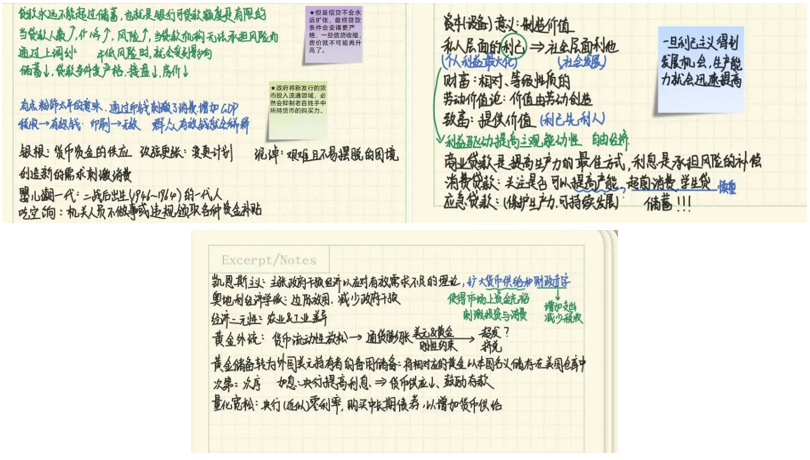 贷款永远不能超过储蓄，也就是银行可贷款额度是有限的
当贷款人数↑，价格↑，风险↑，当贷款机构无法承担风险而
通过上调
储蓄↓，贷款条件变严格，接盘↓，房价↓
★但是信贷不会永
远扩张，最终贷款
条件会变得更严
格，一旦信贷收缩，
房价就不可能再升
高了。
通过印钱刺激了消费，增加GDP
★政府将新发行的货
币投入流通领域，必
然会抑制老百姓手中
所持货币的购买力。
银根：货币资金的供应 改弦更张：变更计划 泥淖：艰难且不易摆脱的困境
创造新的需求刺激消费
婴儿潮一代：二战后出生(1946~1964)的一代人
吃空饷：机关人员不做事或违规领取各种资金补贴
资本(设备)意义：制造价值
私人层面的利己 ⇒ 社会层面利他
(个人利益最大化) (社会发展)
财富：相对、等级性质的
劳动价值论：价值由劳动创造
致富：提供价值 (利己先利人)
利益驱动提高主观能动性 自由经济
商业贷款是提高生产力的最佳方式，利息是承担风险的补偿
消费贷款：关注是否可以提高产能，超前消费 学生贷 慎重
应急贷款：(保护生产力，可持续发展) 储蓄!!!
一旦利己主义得到
发展机会，生产能
力就会迅速提高
Excerpt/Notes
凯恩斯主义：主张政府干预经济以应对有效需求不足的理论，扩大货币供给和财政赤字
奥地利经济学派：边际效用，减少政府干预
使得市场上资金充裕
刺激投资与消费
增加支出
减少税收
经济二元性：农业&工业差异
黄金外流：货币流动性放松 → 通货膨胀 美元&黄金 刚性约束 →
黄金储备转为外国美元持有者的备用储备：将相对应的黄金以本国名义储存在美国仓库中
次第：次序 加息：央行提高利息 ⇒ 货币供应↓、鼓励存款
量化宽松：央行(近似)零利率，购买中长期债券，以增加货币供给